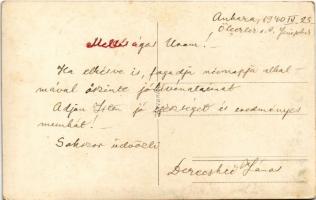 Ankara, 1940 IV. 23.
Méltóságos Uram!
Ha elkésve is, fogadja névnapja alkal-
mával őszinte jókívánataimat
Adjon Isten jó egészséget és eredményes
munkát!
Sokszor üdvözli
János